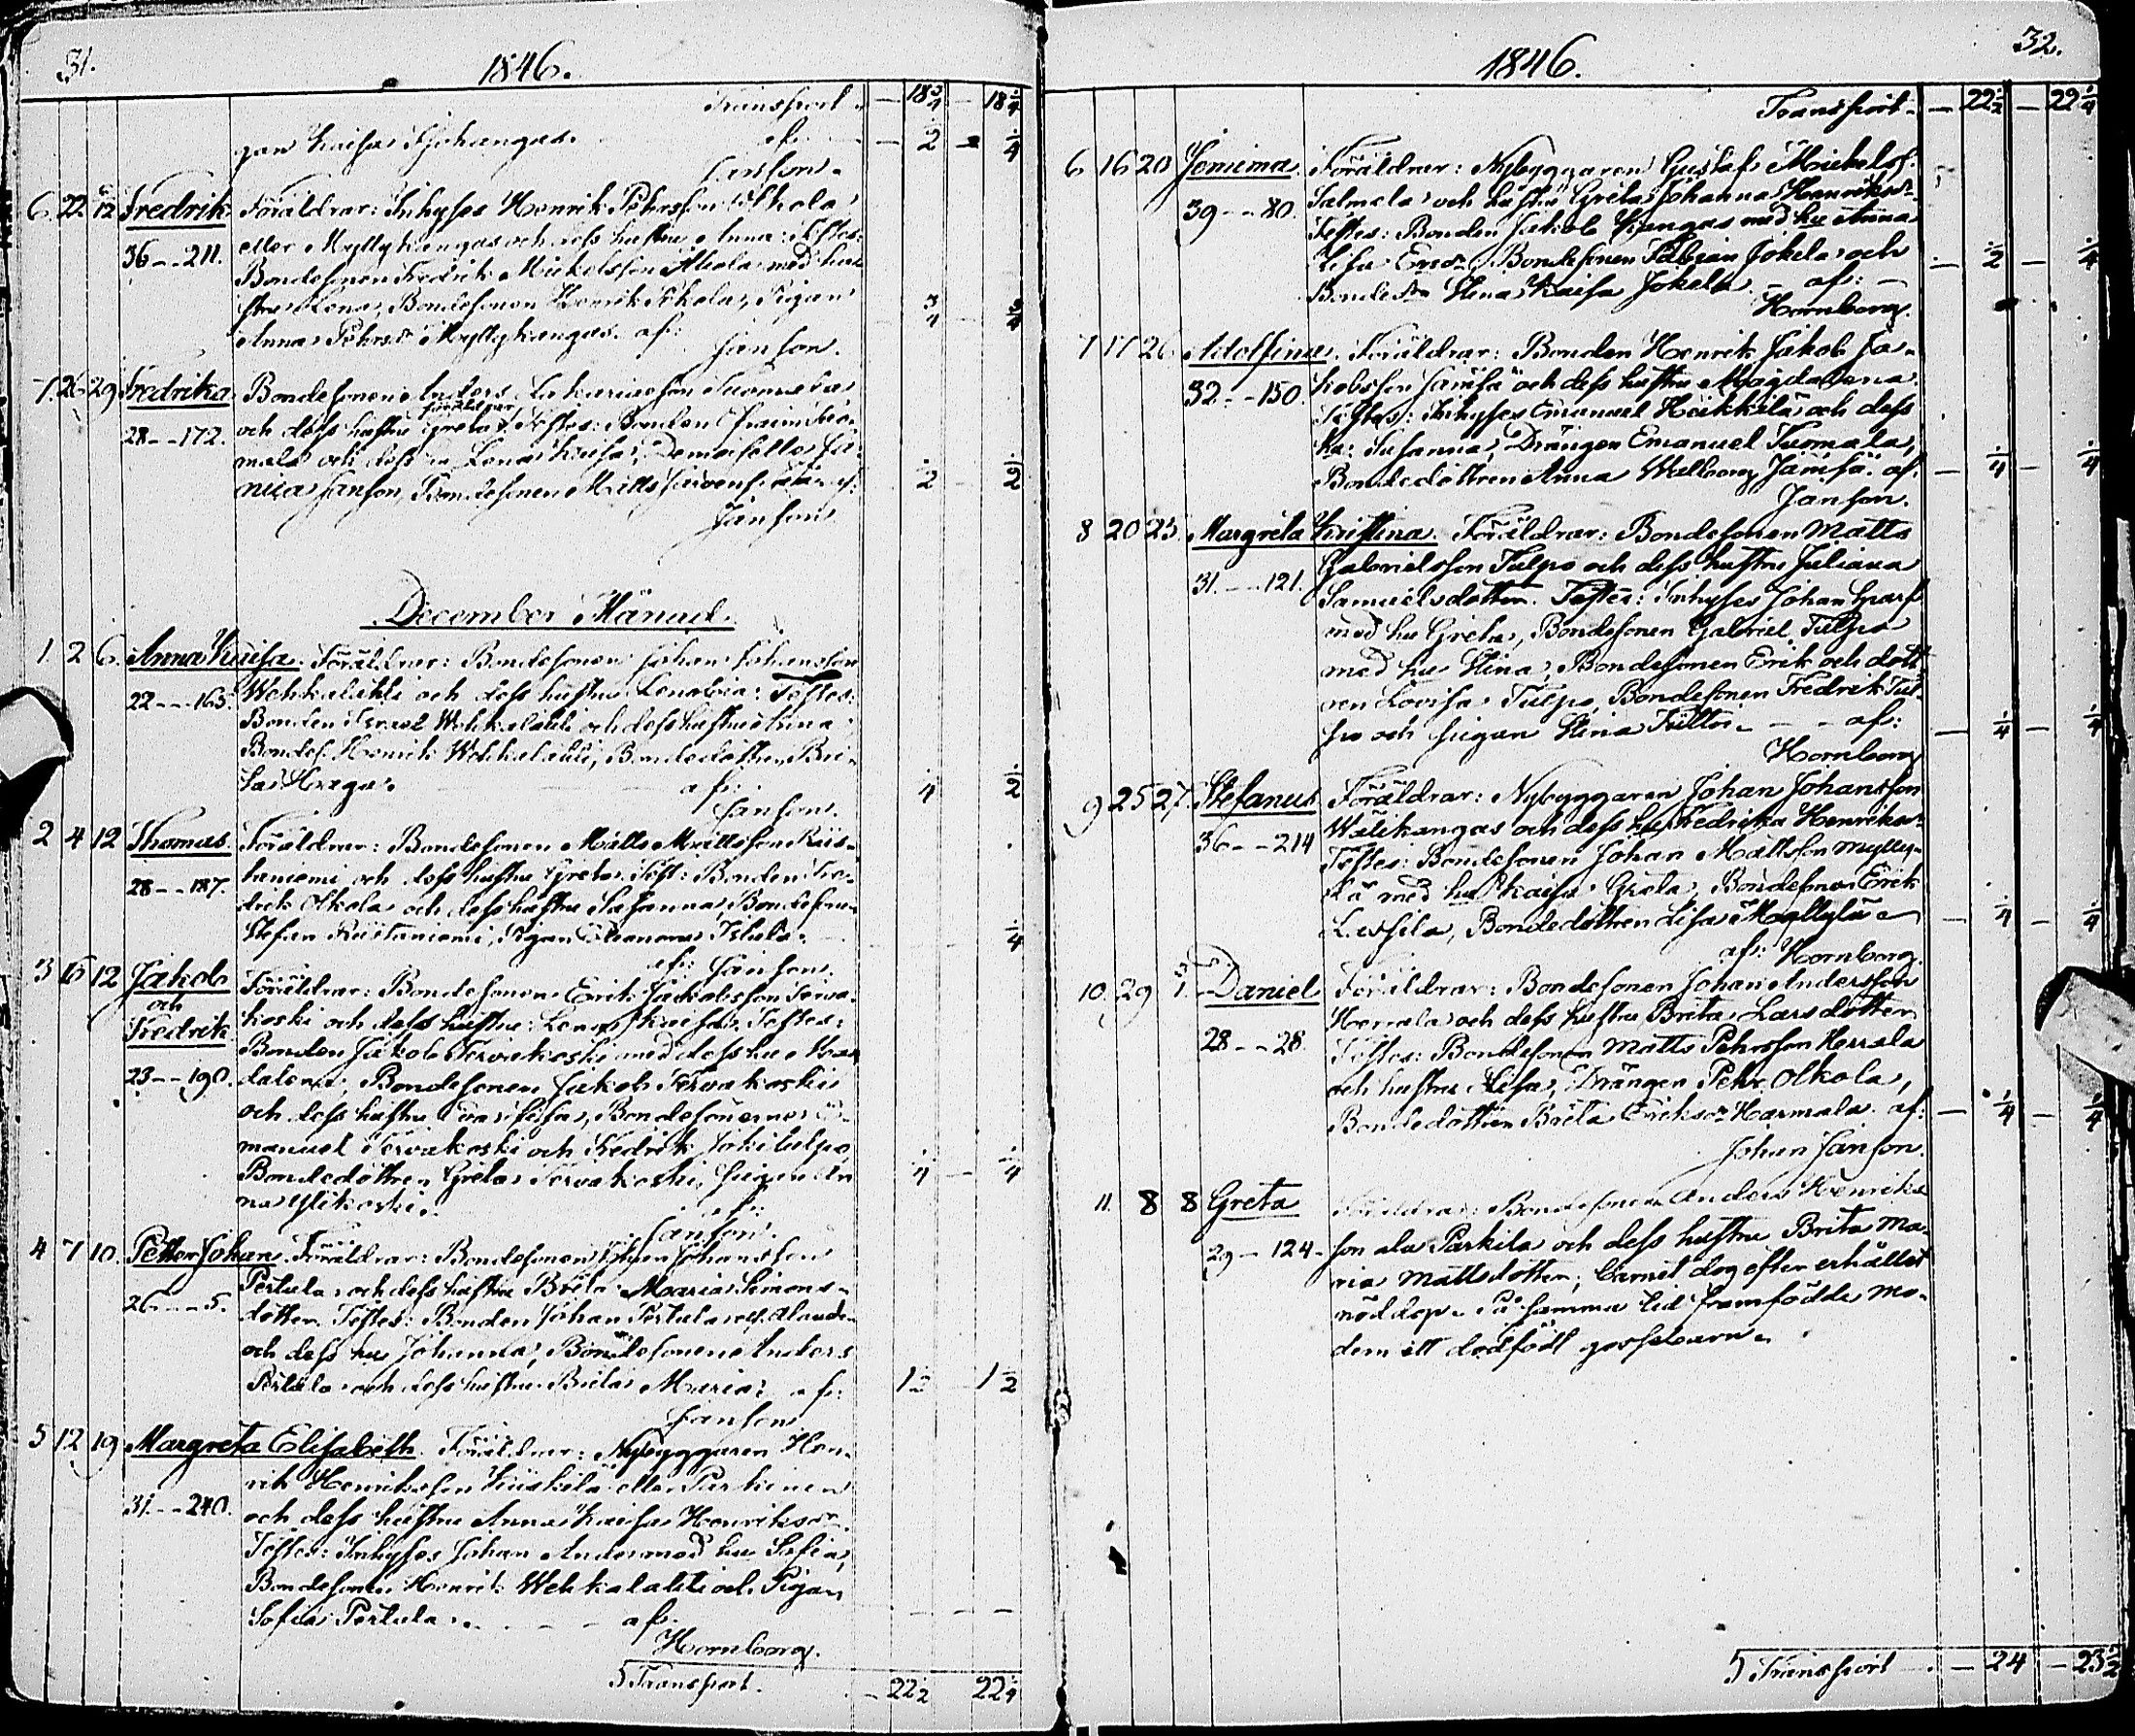 31.
1846.
Transport. — 18 3/4 — 18 1/4
gan Kaisa Kjohangas. af. — 1/2 — 1/4
Janson.
6. 22 6/12 Fredrik Föräldrar: Inhyses Henrik Pehrsson
36 - - 211. eller Myllykangas och dess hustru Anna: Testes:
Bondesonen Fredrik Mickelsson Alkola med hu-
stru Lena, Bondesonen Henrik Pigan
Anna Pehrsdr Myllykangas. af: 3/4 3/4
Janson.
7. 26 29 Fredrika Bondesonen Anders Tuomela
föräldrar
28 - - 172. och dess hustru Greta. Testes: Bonden Efraim Tuo-
mela och dess hu Lena Kaisa, Demoiselle
Janson, Bondesonen Matts af: 1/2 1/2
Janson
December Månad.
1. 2 6. Anna Kaisa. Föräldrar: Bondesonen Johan Johansson
22 - - 165. Wehkalahti och dess hustru Testes:
Bonden Israel Wehkalahti och dess hustru Anna
Bondes. Henrik Wehkalahti, Bondedottren Bri-
ta Haga. af: 1/4 1/2
Janson.
2 4 12 Thomas. Föräldrar: Bondesonen Matts Mattsson Ris-
28 - - 187. taniemi och dess hustru Greta. Test: Bonden Fre-
drik Olkola och dess hustru Susanna, Bondesonen
Stefan Ristaniemi, Pigan Eleanora 1/4
af: Janson.
3 15 12 Jakob Föräldrar: Bondesonen Erik Jakobsson Terva-
och
Fredrik koski och dess hustru Lena Kaisa. Testes:
Bonden Jakob Tervakoski med dess hu Mag-
23 - - 190. dalena, Bondesonen Jakob Tervakoski
och dess hustru Eva Lisa, Bondesönerne E-
manuel Tervakoski och Fredrik Jokitulpo,
Bondedottren Greta Tervakoski, Pigan An- 1/4 — 1/4
na Ylikoski. af:
Janson.
4 7 10. Petter Johan. Föräldrar: Bondesonen Johan Johansson
Pertula och dess hustru Brita Maria Simons-
26 - - 5. dotter. Testes: Bonden Johan Pertula
och dess hu Johanna, Bondesonen Anders
Pertula och dess hustru Brita Maria. af: 1 1/2 1 1/2
Janson
5 12 19 Margreta Elisabeth. Föräldrar: Nybyggaren Hen-
rik Henriksson eller Parkinen
31. - - 240. och dess hustru Anna Kaisa Henriksdr.
Testes: Inhyses Johan Anders med hu Sofia,
Bondesonen Henrik Wehkalahti och Pigan
Sofia Pertula. - - af. — — —
Hornborg.
Transport. — 22 1/2 22 1/4
32.
1846.
Transport. — 22 1/2 — 22 1/4
6 16 20 Jemima. Föräldrar: Nybyggaren Gustaf Mickelss.
39 - - 80. Salmela och hustru Greta Johanna Henriksdr
Testes: Bonden Jakob Kangas med hu Anna
Lisa Ersdr, Bondesonen Fabian Jokela och — 1/2 — 1/4
Bondedn Stina Kaisa Jokela — af: —
Hornborg.
7 17 26 Adolfina. Föräldrar: Bonden Henrik Jakob Ja-
32 - - 150. kobsson Jämsä och dess hustru Magdalena.
Testes: Inhyses Emanuel Heikkilä och dess
hu: Susanna, Drängen Emanuel Tuomala,
Bondedottren Anna Walborg Jämsä. af. — 1/4 — 1/4
Janson.
8 20 25. Margreta Kristina. Föräldrar: Bondesonen Matts
31. - - 121. Gabrielsson Tulpo och dess hustru Juliana
Samuelsdotter. Testes: Inhyses Johan Graf
med hu Greta, Bondesonen Gabriel Tulpo
med hu Stina, Bondesonen Erik och dott-
ren Lovisa Tulpo, Bondesonen Fredrik Tul-
po och pigan Stina — - af: — 1/4 — 1/4
Hornborg
9 25 27. Stefanus Föräldrar: Nybyggaren Johan Johansson
36 - - 214 Wälikangas och dess hu Fredrika Henriksdr
Testes: Bondesonen Johan Mattsson Mylly-
lä med hu Kaisa Greta, Bondesonen Erik
Bondedottren Lisa Myllylä — — 1/4 — 1/4
af: Hornborg.
10. 29 1. Daniel Föräldrar: Bondesonen Johan Andersson
28 - - 28. Herrala och dess hustru Brita Larsdotter
Testes: Bondesonen Matts Pehrsson Herrala
och hustru Lisa, Drängen Pehr Olkola,
Bondedottren Brita Eriksdr Harmala. af: — 1/4 — 1/4
Johan Janson.
11. 8 8 Greta Föräldrar: Bondesonen Anders Henriks-
29 - 124 - son ala Parkila och dess hustru Brita Ma-
ria Mattsdotter; barnet dog efter erhållet
nöddop. På samma tid framfödde mo-
dern ett dödfödt gossebarn.
Transport — . — 24 — 23 1/2